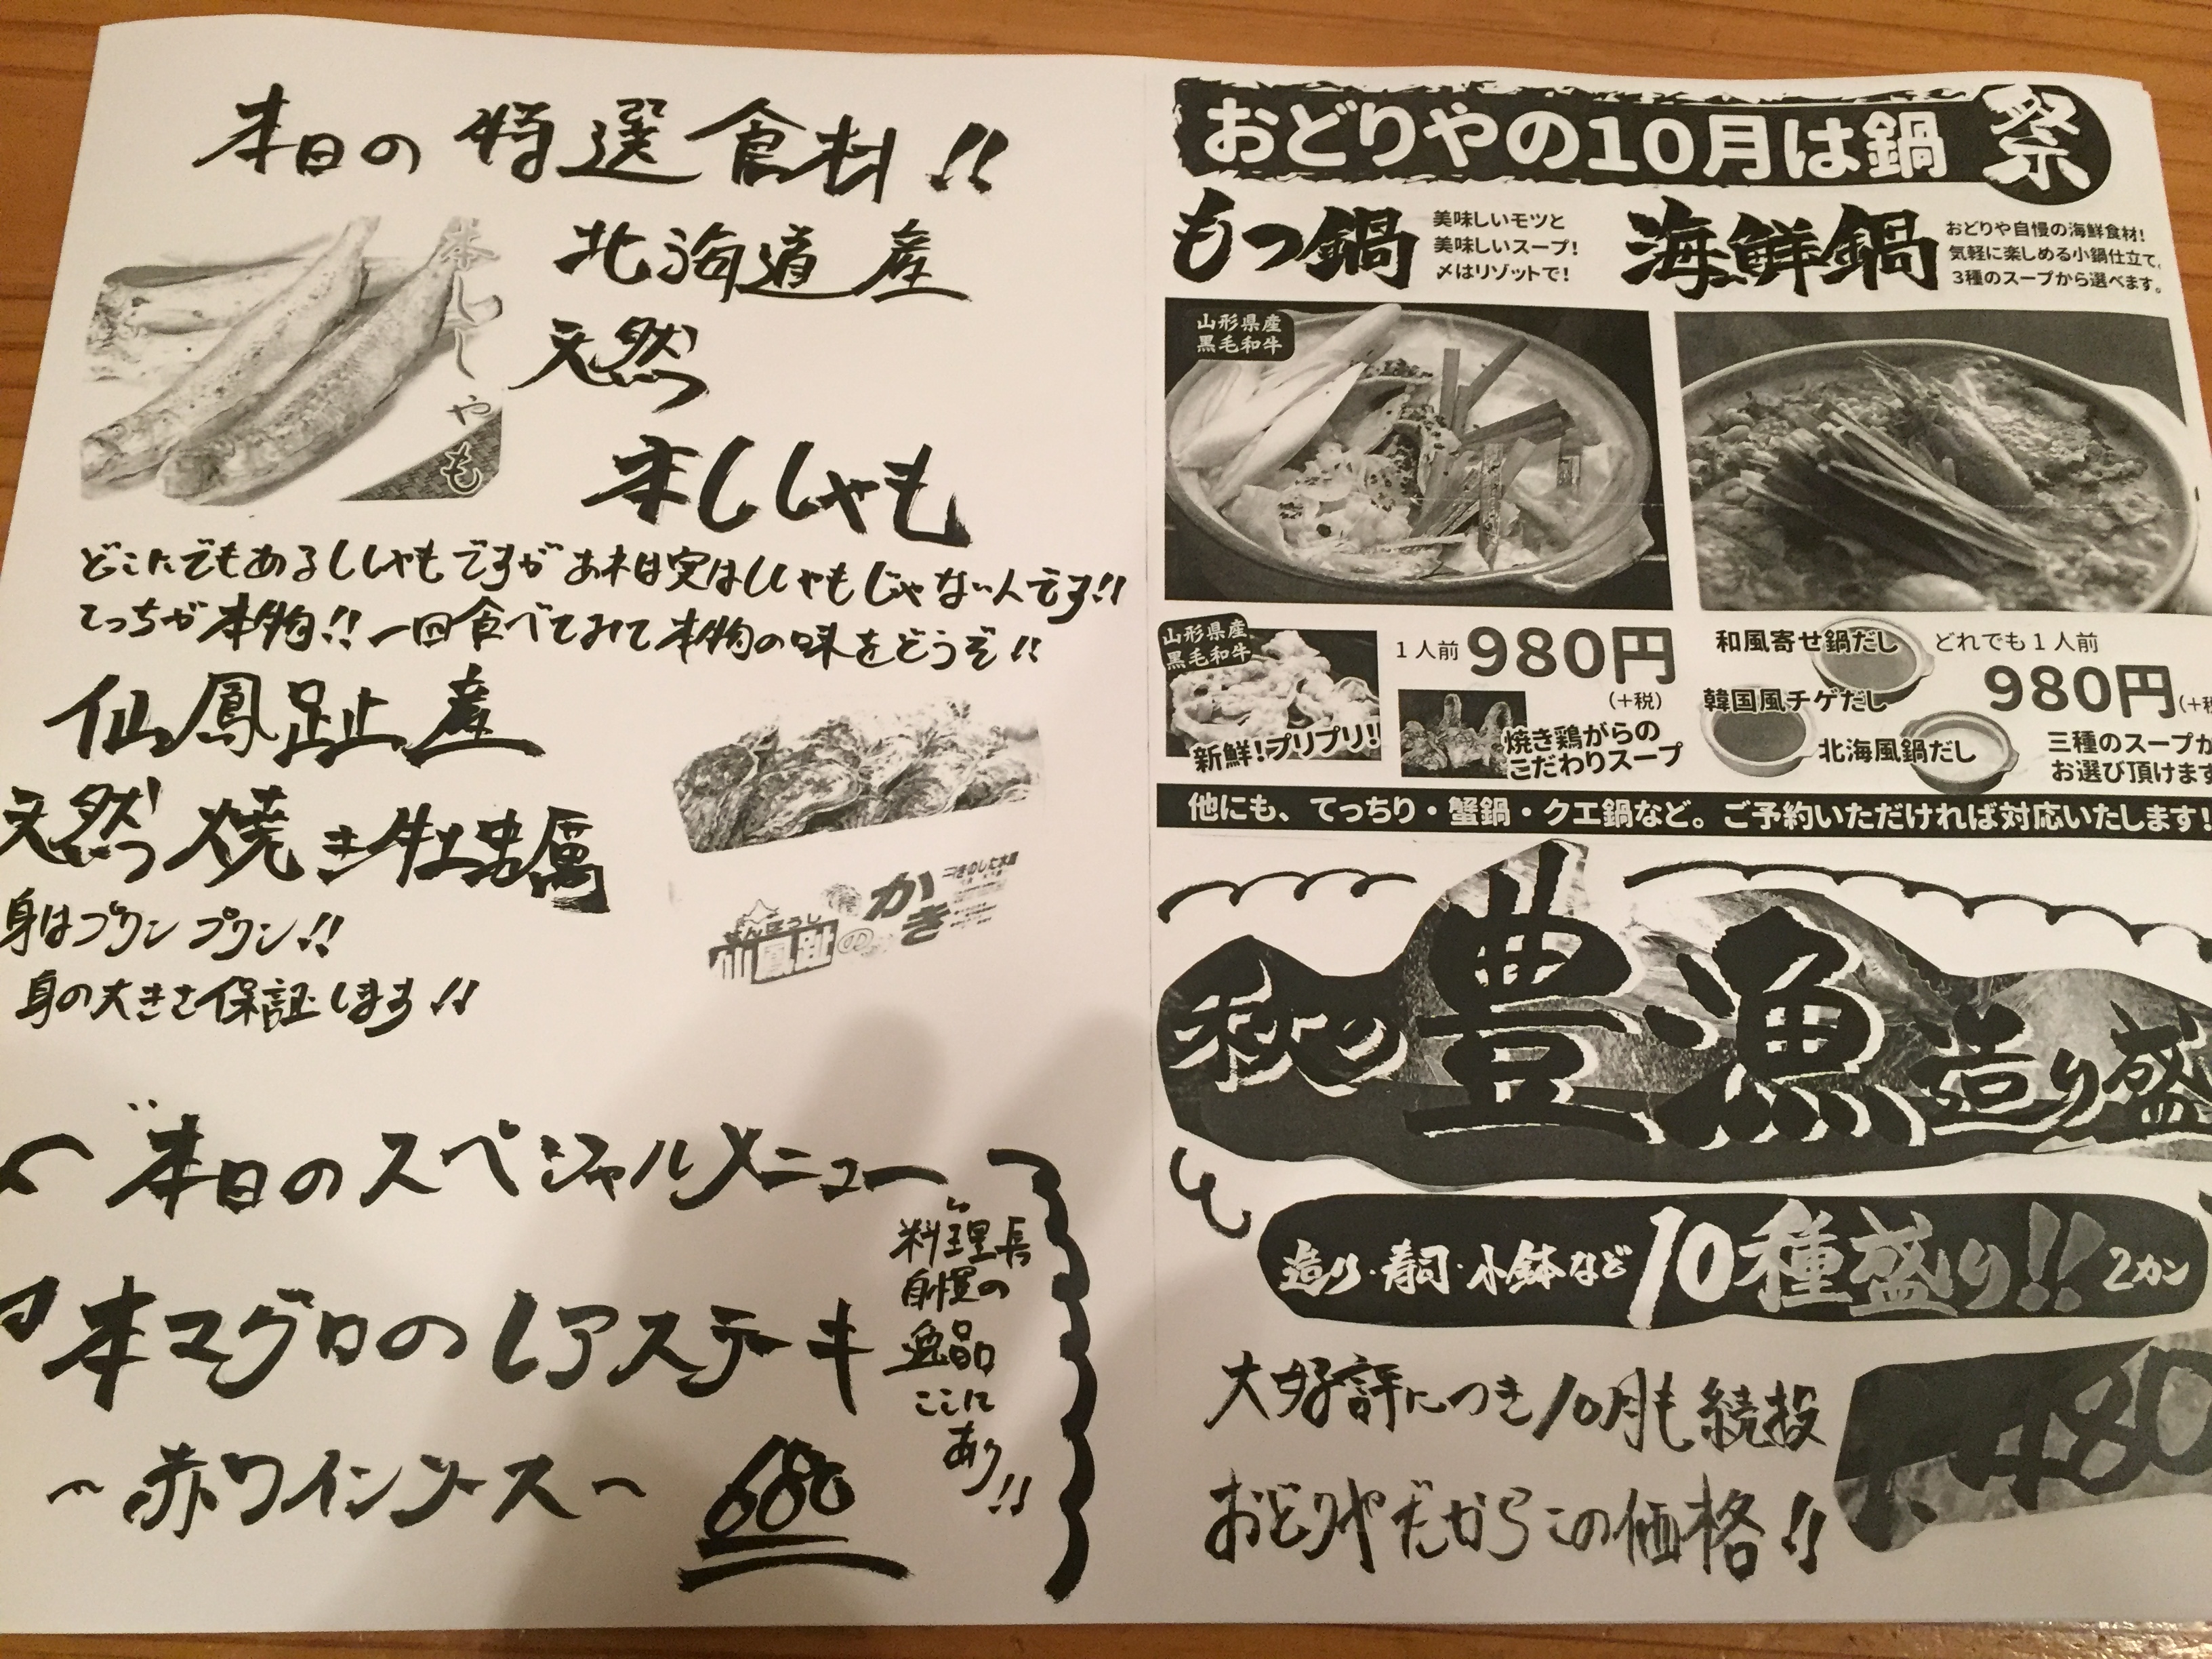 本日の特選食材!!
本ししゃも
北海道産
天然
本ししゃも
どこにでもあるししゃもですがあれは実はししゃもじゃないんです!!
こっちが本物!!一回食べてみて本物の味をどうぞ!!
仙鳳趾産
天然焼き牡蠣
身はプリンプリン!!
身の大きさ保証します!!
せんぽうし
仙鳳趾のかき
本日のスペシャルメニュー
本マグロのレアステーキ
〜赤ワインソース〜 680
料理長
自慢の
逸品
ここに
あり!!
おどりやの10月は鍋祭
もつ鍋
美味しいモツと
美味しいスープ!
〆はリゾットで!
山形県産
黒毛和牛
山形県産
黒毛和牛
新鮮!プリプリ!!
1人前980円
(+税)
焼き鶏がらの
こだわりスープ
海鮮鍋
おどりや自慢の海鮮食材!
気軽に楽しめる小鍋仕立て、
3種のスープから選べます。
和風寄せ鍋だし
韓国風チゲだし
北海風鍋だし
どれでも1人前
980円(+税
三種のスープか
お選び頂けます
他にも、てっちり・蟹鍋・クエ鍋など。ご予約いただければ対応いたします!
秋の豊漁造り盛
造り・寿司・小鉢など10種盛り!! 2カン
大好評につき10月も続投
おどりやだからこの価格!!
1,480